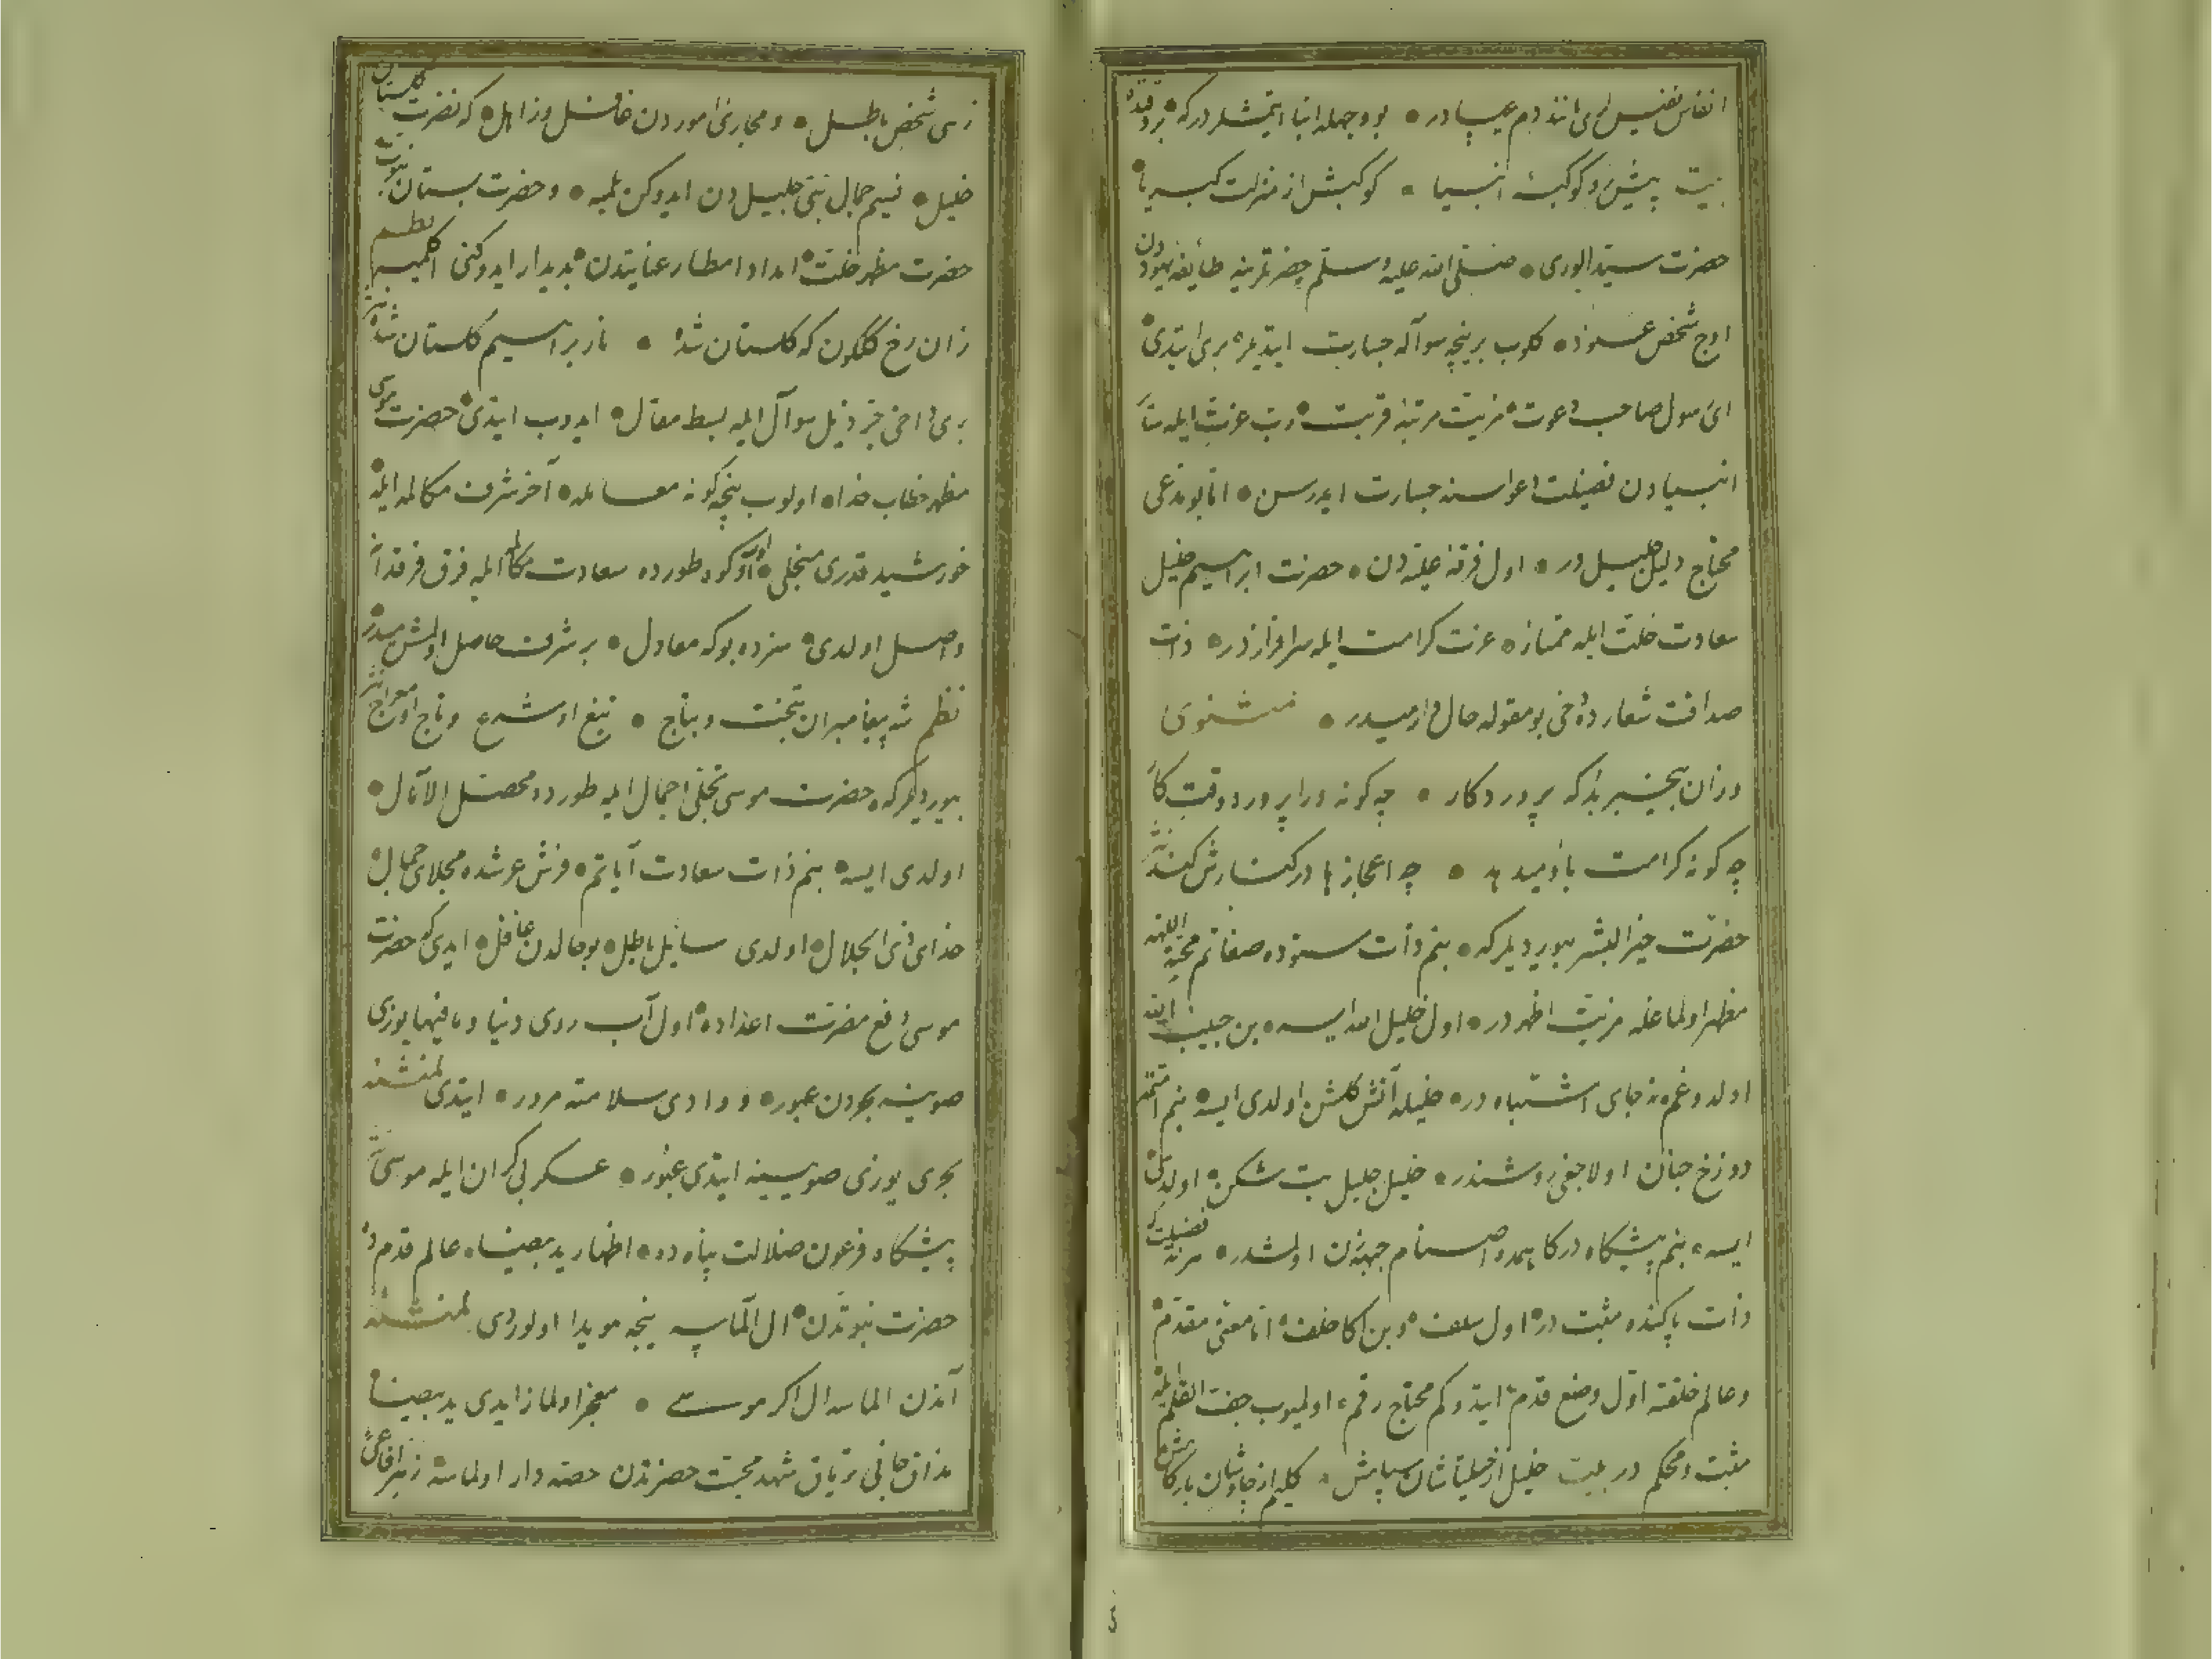 انفاس نفیس لری مانند دم عیسادر بو وجهله انبا ایتمشلردرکه بر دفعه
بیت پیش رو کوکبهٔ انبیا کوکبش از منزلت کبریا
حضرت سید الوری صلی الله علیه وسلم حضرتلرینه طایفهٔ یهوددن
اوج شخص عنود کلوب بر نیجه سؤاله جسارت ایتدیلر بری ایتدی
ای رسول صاحب دعوت مزیت مرتبهٔ قربت رب عزت ایله سائر
انبیادن فضیلت دعواسنه جسارت ایدرسن اما بو مدعی
محتاج دلیل جلیل در اول فرقهٔ علیه دن حضرت ابراهیم خلیل
سعادت خلت ایله ممتاز عزت کرامت ایله سرافرازدر ذات
صداقت شعارده دخی بو مقوله حال وارمیدر مثنوی
وزان بیخبر بد که پروردکار چه کونه ورا پرورد وقت کار
چه کونه کرامت بدو میدهد چه اعجازها در کنارش کنند نثر
حضرت خیر البشر بیوردیلرکه بنم ذات ستوده صفاتم محبة اللهه
مظهر اولمغله مزیت اظهردر اول خلیل الله ایسه بن حبیب الله
اولدوغم نه جای اشتباه در خلیله آتش کلشن اولدی ایسه بنم امتمه
دوزخ جنان اولاجغی روشندر خلیل جلیل بت شکن اولدی
ایسه بنم پیشکاه درکاهمده اصنام جبهه زن اولمشدر مرتبهٔ فضیلت که
ذات پاکنده مثبت در اول سلف و بن اکا خلف اما معنی مقدم
وعالم خلقته اول وضع قدم ایتدوکم محتاج رقم اولمیوب جف القلم ایله
مثبت ومحکم در بیت خلیل از خیلتاشان سپاهش کلیم از چاوشان بارکاهش
زهی شخص باطل ومجاری اموردن غافل وذاهل که نضرت کلستان
خلیل نسیم جمال نبی جلیل دن ایدوکن بلمیه وحضرت بستان نبوت
حضرت مظهر خلت امداد امطار عنایتدن بدیدار ایدوکنی اکلمیه نظم
زان رخ کلکون که کلستان شده نار براهیم کلستان شده نثر
بری دخی جر ذیل سؤال ایله بسط مقال ایدوب ایتدی حضرت موسی
مظهر خطاب خدا اولوب نیجه کونه معامله آخر شرف مکالمه ایله
خورشید قدری منجلی اولدی اوکوه طورده سعادت مکالمه ایله فرق فرقدانه
واصل اولدی سزده بوکه معادل بر شرف حاصل اولمش میدر
نظم شه پیغامبران بتخت وبتاج تیغ او شرع وتاج او معراج نثر
بیوردیلرکه حضرت موسی تجلی اجمال ایله طورده محصل الآمال
اولدی ایسه بنم ذات سعادت آیاتم فرش عرشده مجلای جمال
خدای ذی الجلال اولدی سایل باطل بو حالدن غافل ایدی که حضرت
موسی دفع مضرت اعداده اول آب روی دنیا ومافیها یوزی
صوینه بحردن عبور و وادی سلامته مرور ایتدی لمنشئه
بحری یوزی صویینه ایتدی عبور عسکر بی کران ایله موسی
پیشکاه فرعون ضلالت پناه ده اظهار ید بیضا عالم قدمده
حضرت نبوتدن ال المسه نیجه هویدا اولوردی لمنشئه
آندن المسه ال اکر موسی معجز اولمازایدی ید بیضا
مذاق جانی تریاق شهد محبت حضرتدن حصه دار اولماسه زهر افاعی